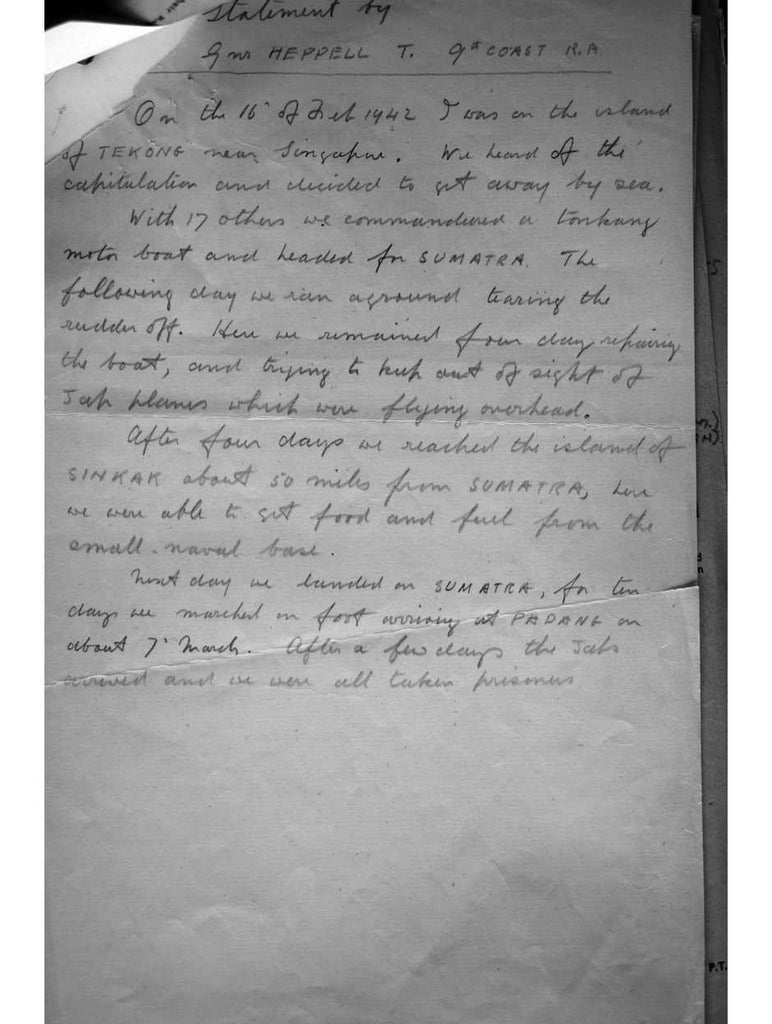 Statement by
Gnr HEPPELL T. 9th COAST R.A.
On the 16th of Feb 1942 I was on the island
of TEKONG near Singapore. We heard of the
capitulation and decided to get away by sea.
With 17 others we commandered a tonkang
motor boat and headed for SUMATRA. The
following day we ran aground tearing the
rudder off. Here we remained four day repairing
the boat, and trying to keep out of sight of
Jap planes which were flying overhead.
After four days we reached the island of
SINKAK about 50 miles from SUMATRA, here
we were able to get food and fuel from the
small naval base.
Next day we landed on SUMATRA, for ten
days we marched on foot arriving at PADANG on
about 7th March. After a few days the Japs
arrived and we were all taken prisoners
P.T.